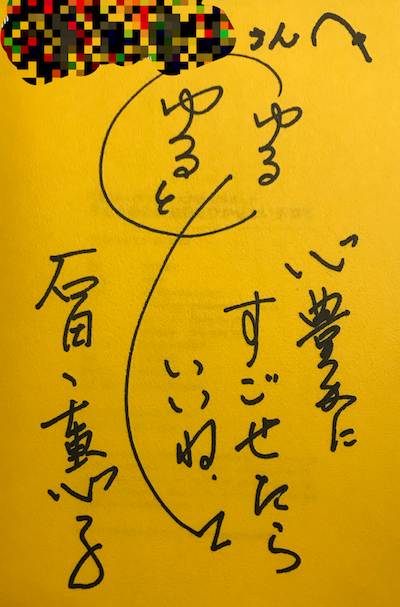 さんへ
ゆる
ゆると
心豊かに
すごせたら
いいね.
石田、惠子